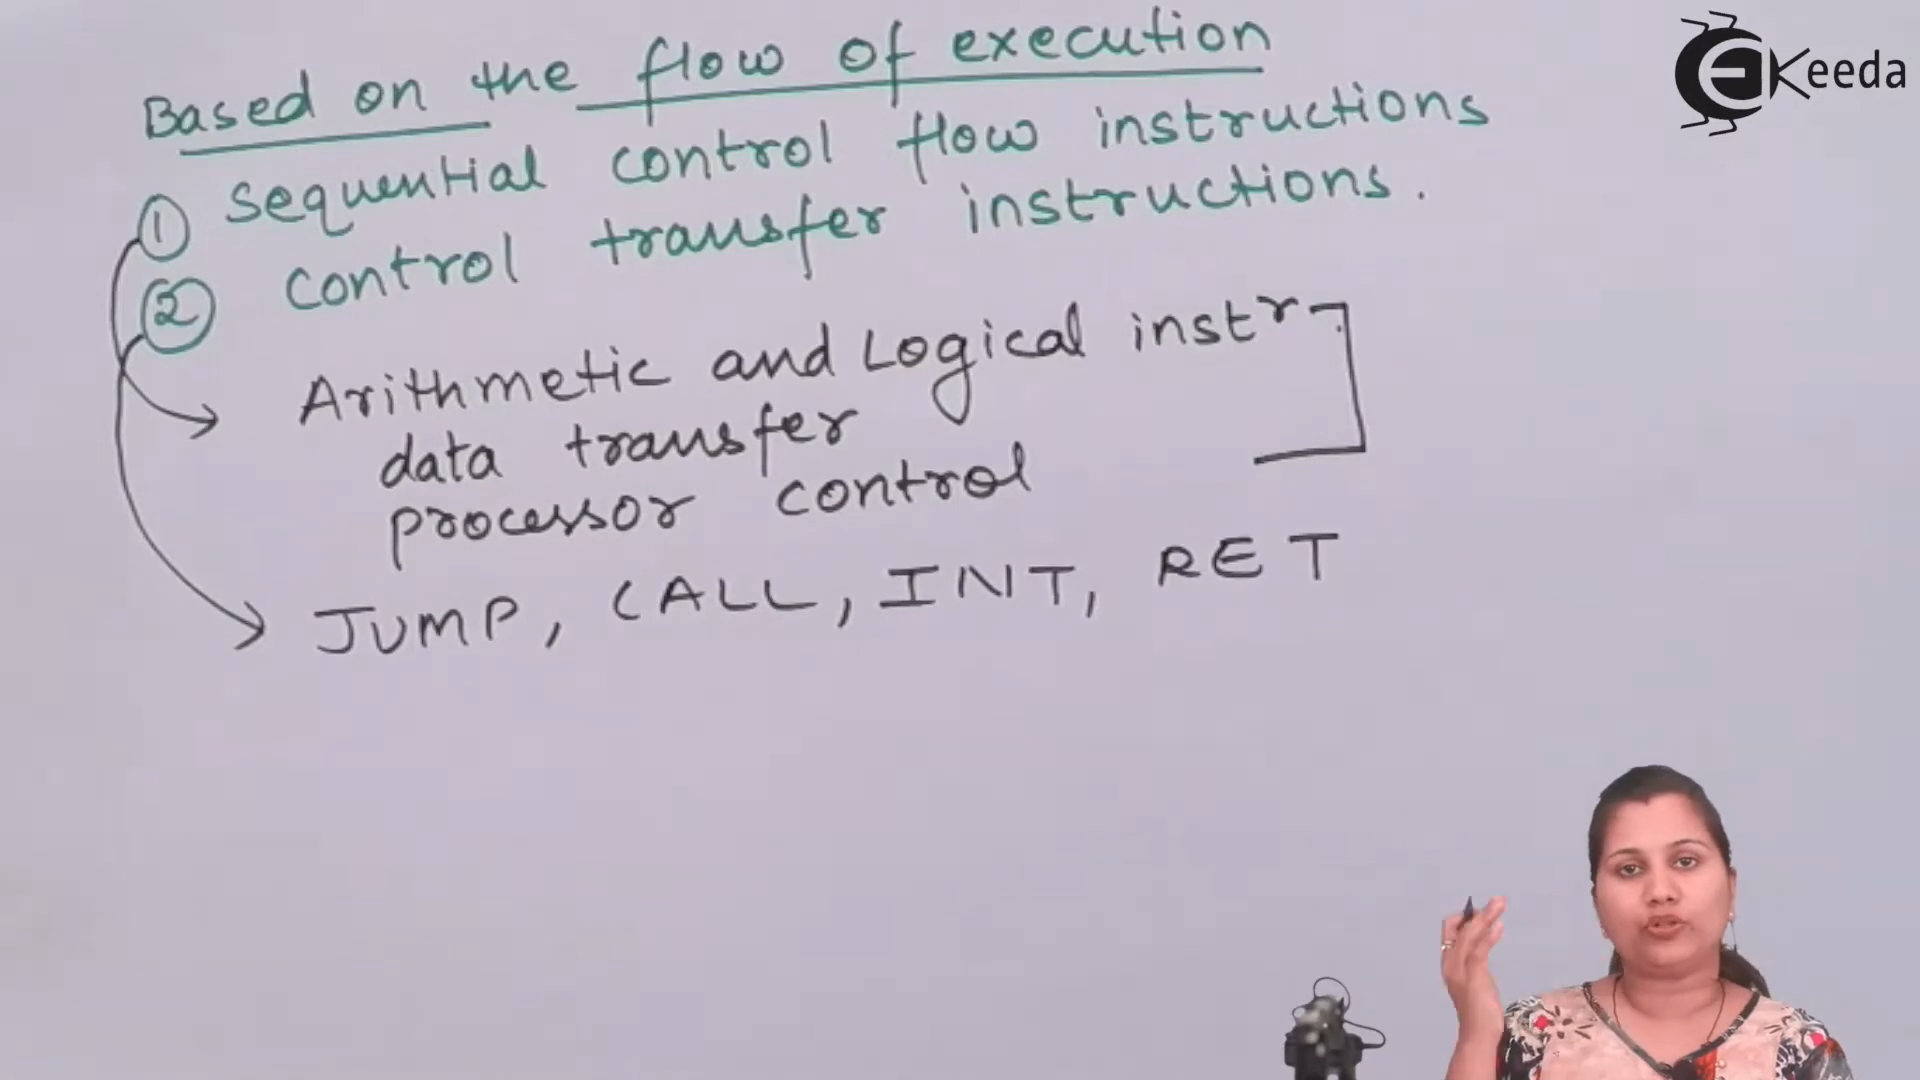 Based on the flow of execution
① sequential control flow instructions
② control transfer instructions.
Arithmetic and Logical instr
data transfer
processor control
JUMP, CALL, INT, RET
EKeeda